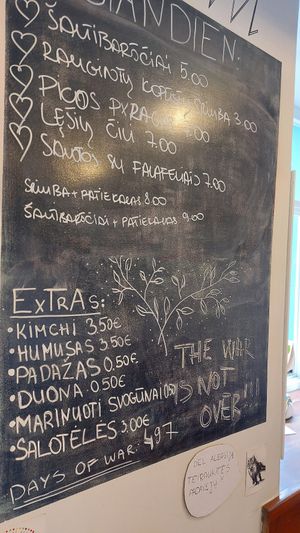 ŠIANDIEN:
ŠALTIBARŠČIAI 5.00
RAUGINTŲ KOPŪSTŲ SRIUBA 3.00
PICOS PYRAGAS 7.00
LĘŠIŲ ČILI 7.00
SALOTOS SU FALAFELIAIS 7.00
SRIUBA + PATIEKALAS 8.00
ŠALTIBARŠČIAI + PATIEKALAS 9.00
EXTRAS:
• KIMCHI 3.50€
• HUMUSAS 3.50€
• PADAŽAS 0.50€
• DUONA 0.50€
• MARINUOTI SVOGŪNAI 0.50
• SALOTĖLĖS 3.00€
DAYS OF WAR: 497
THE WAR
IS NOT
OVER!!!
DĖL ALERGIJŲ
TEIRAUKITĖS